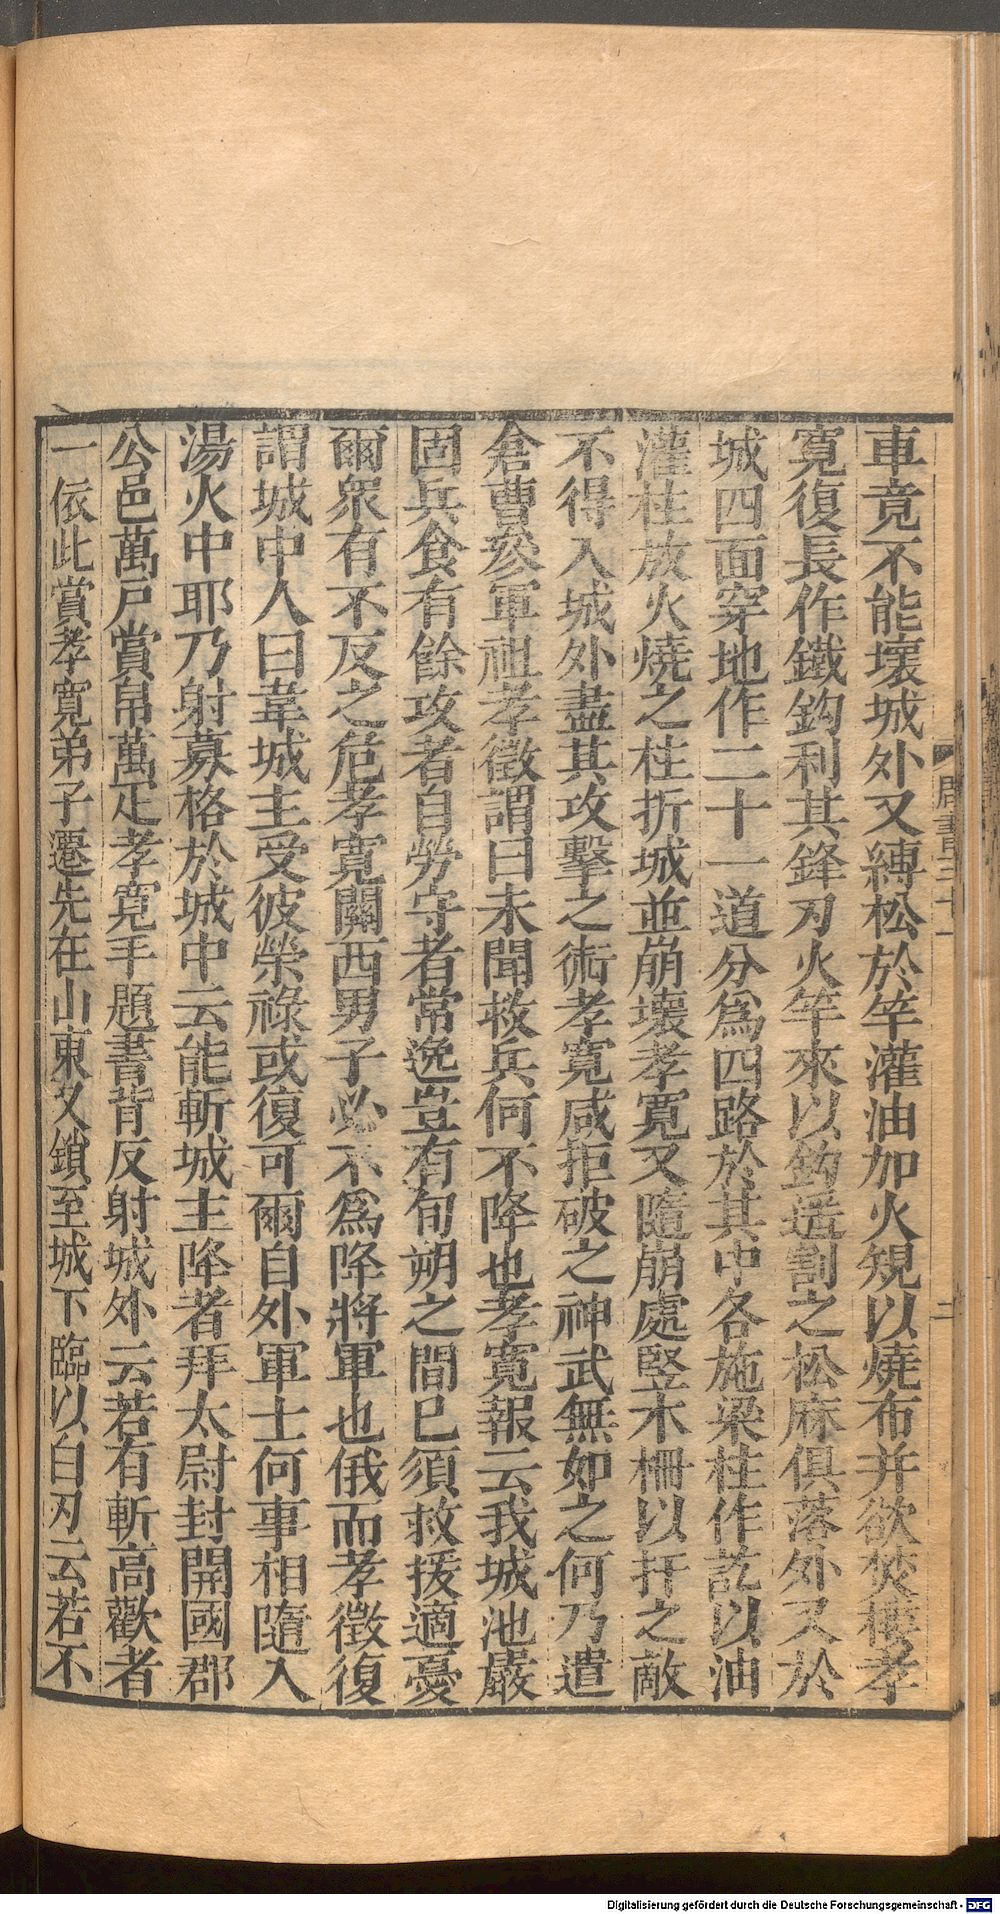 車竟不能壞城外又縛松於竿灌油加火規以燒布并欲焚樓孝
寬復長作鐵鈎利其鋒刃火竿來以鈎遥割之松麻俱落外又於
城四面穿地作二十一道分爲四路於其中各施梁柱作訖以油
灌柱放火燒之柱折城並崩壞孝寬又隨崩處竪木柵以扞之敵
不得入城外盡其攻擊之術孝寬咸拒破之神武無如之何乃遣
倉曹叅軍祖孝徵謂曰未聞救兵何不降也孝寬報云我城池嚴
固兵食有餘攻者自勞守者常逸豈有旬朔之間已須救援適憂
爾衆有不反之危孝寬關西男子必不爲降將軍也俄而孝徵復
謂城中人曰韋城主受彼榮祿或復可爾自外軍士何事相隨入
湯火中耶乃射募格於城中云能斬城主降者拜太尉封開國郡
公邑萬戶賞帛萬疋孝寬手題書背反射城外云若有斬高歡者
一依此賞孝寬弟子遷先在山東又鎖至城下臨以白刃云若不
周書三十一
二
Digitalisierung gefördert durch die Deutsche Forschungsgemeinschaft - DFG